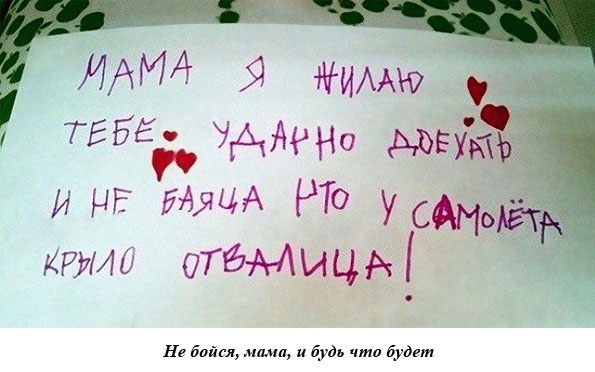 МАМА Я ЖИЛАЮ
ТЕБЕ УДАЧНО ДОЕХАТЬ
И НЕ БАЯЦА ЧТО У САМОЛЁТА
КРЫЛО ОТВАЛИЦА!
Не бойся, мама, и будь что будет